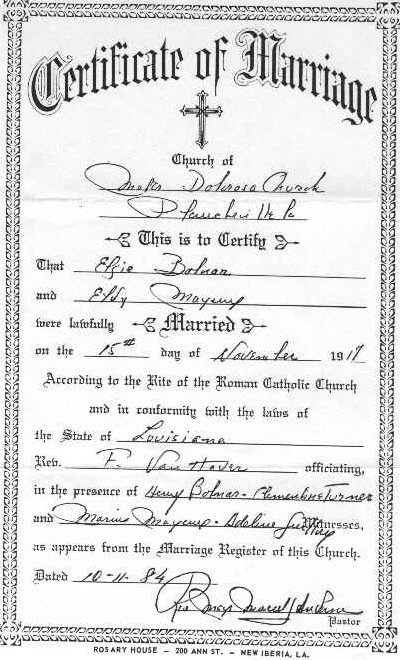 Certificate of Marriage
Church of
Mater Dolorosa Church
Plaucheville La
This is to Certify
That Elzie Bolnar
and Eldy Mayeux
were lawfully Married
on the 15th day of November 1917
According to the Rite of the Roman Catholic Church
and in conformity with the laws of
the State of Louisiana
Rev. F. Van Haver officiating,
in the presence of Henry Bolnar - Clementine Turner
and Marius Mayeux - Adeline Witnesses,
as appears from the Marriage Register of this Church.
Dated 10-11-84
Rev
Pastor
ROSARY HOUSE — 200 ANN ST. — NEW IBERIA, LA.